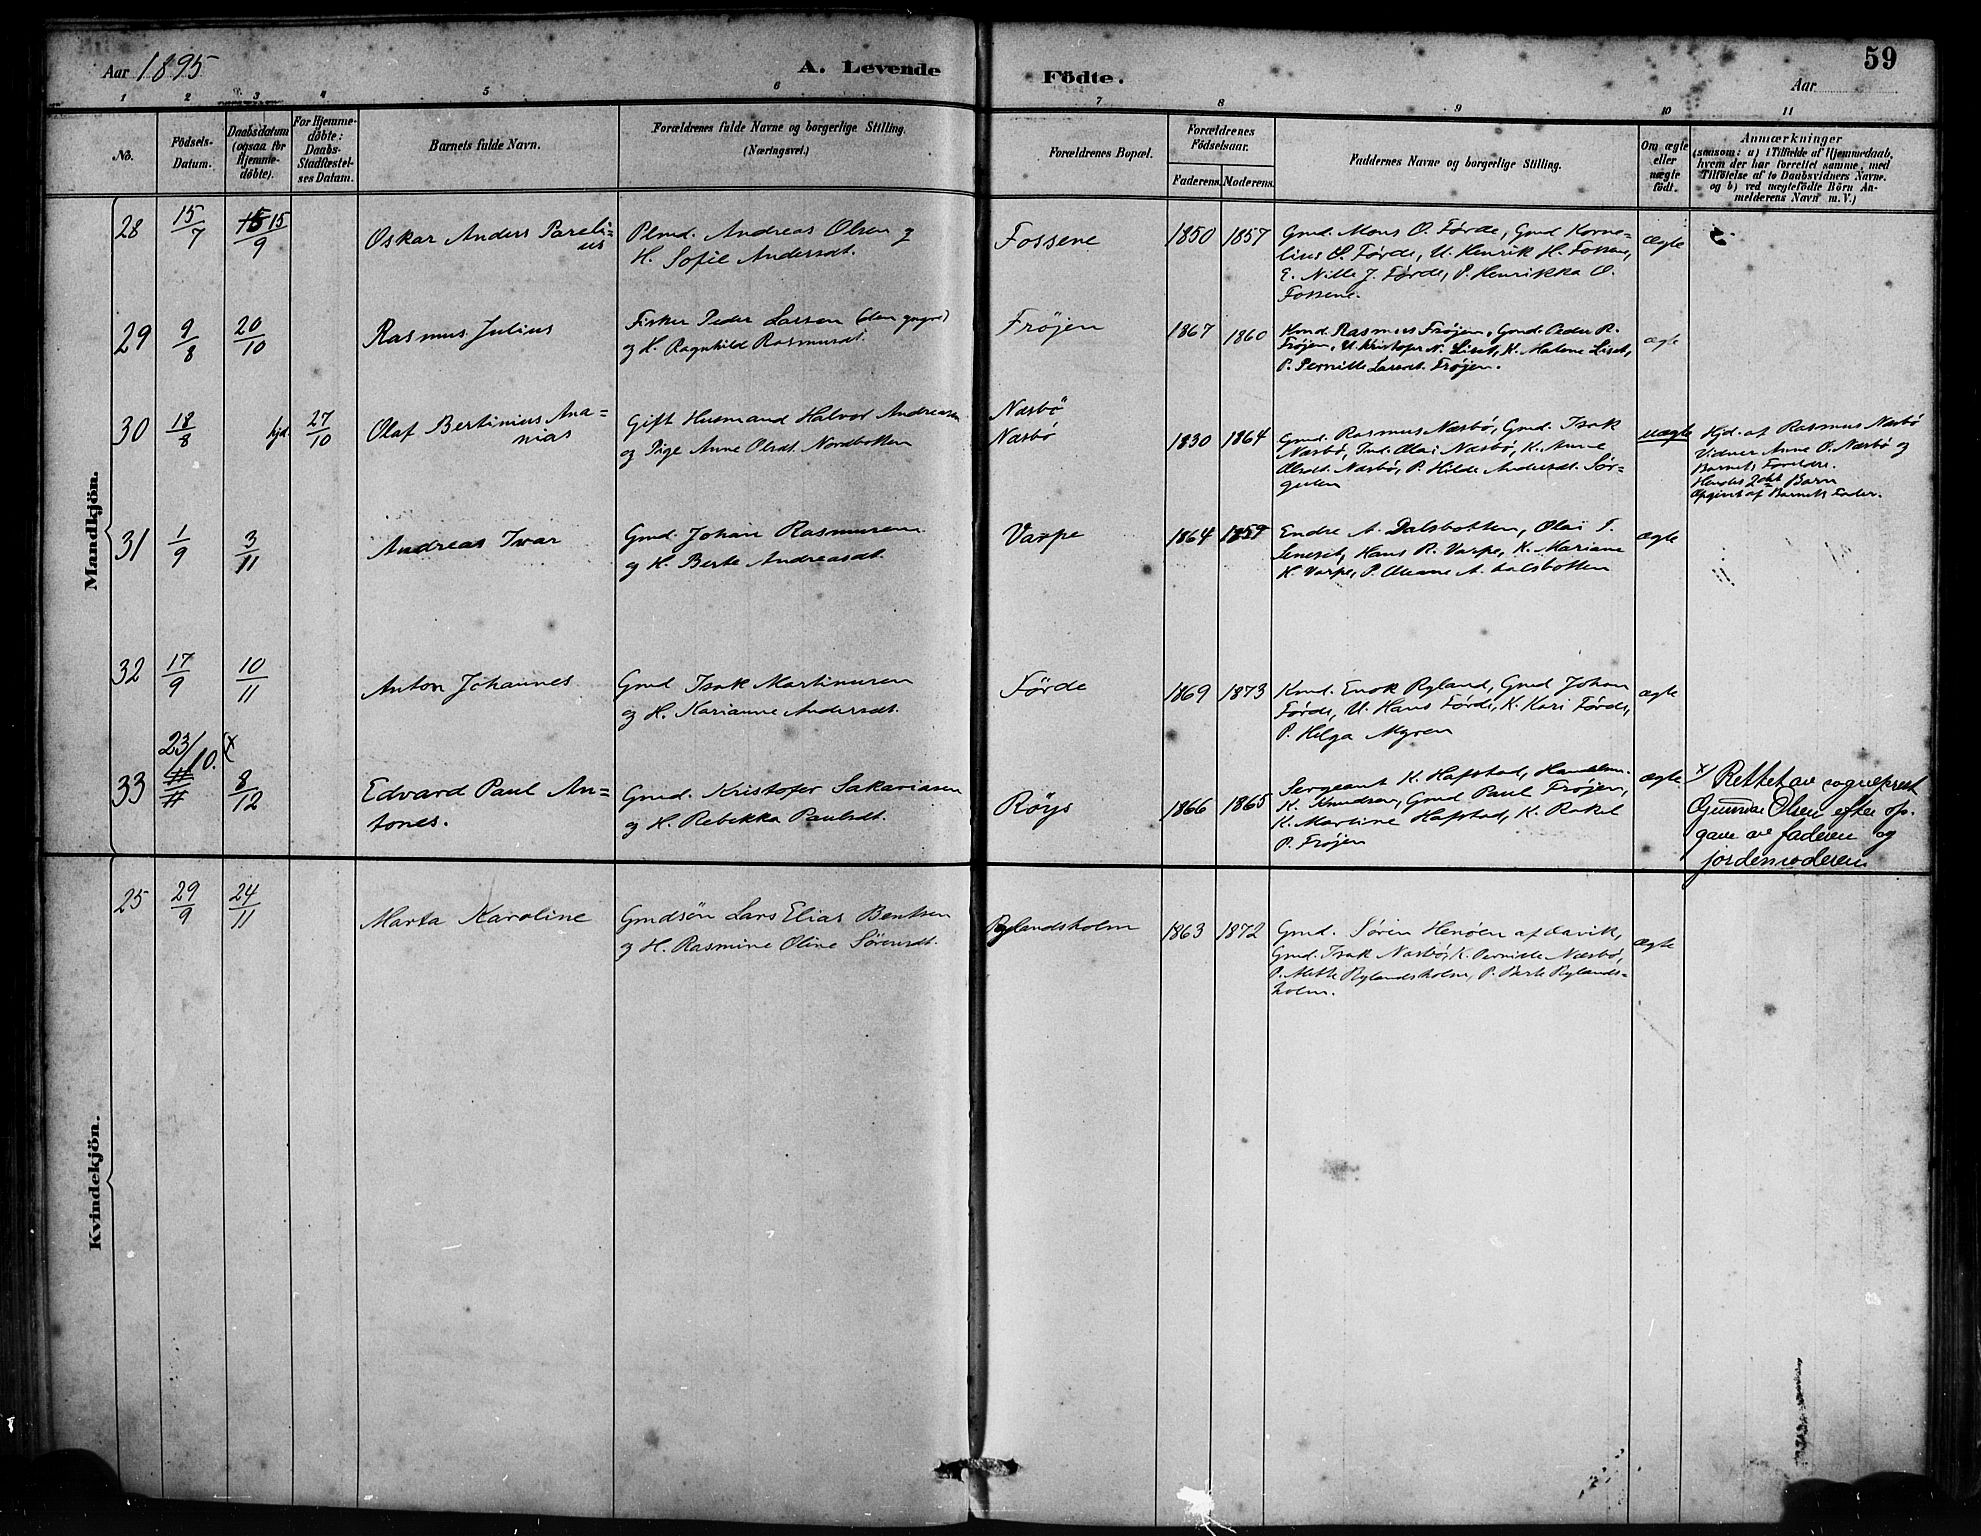 Aar 1895
A. Levende Födte.
59
Aar
1 2 3 4 5 6 7 8 9 10 11
No.
Födsels-
Datum.
Daabsdatum
(ogsaa for
Hjemme-
døbte).
For Hjemme-
døbte:
Daabs-
Stadfæstel-
ses Datum.
Barnets fulde Navn.
Forældrenes fulde Navne og borgerlige Stilling.
(Næringsvei.)
Forældrenes Bopæl.
Forældrenes
Födselsaar.
Faderens. Moderens.
Faddernes Navne og borgerlige Stilling.
Om ægte
eller
uægte
födt.
Anmærkninger
(saasom: a) i Tilfælde af Hjemmedaab,
hvem der har forrettet samme, med
Tilföielse af to Daabsvidners Navne.
og b) ved uægtefödte Börn An-
melderens Navn m. V.)
Mandkjön.
28 15/7 15/9
Oskar Anders Pareli=
us
Plmd. Andreas Olsen og
H. Sofie Andersdt.
Fossene
1850 1857
Gmd. Mons O. Førde, Gmd Korne-
lius O. Førde, U. Henrik H. Fossene,
E. Nille J. Førde, P. Henrikka O.
Fossene.
ægte
29 9/8 20/10
Rasmus Julius
Fisker Peder Larsen
og H. Ragnhild Rasmusdt.
Frøjen
1867 1860
Kmd. Rasmus Frøjen, Gmd. Peder R.
Frøjen, U. Kristofer N. Liset, K. Malene Liset,
P. Pernille Larsdt. Frøjen.
ægte
30 18/8 hjd. 27/10
Olaf Bertinius Ana=
nias
Gift Husmand Halvor Andreasen
og Pige Anne Olsdt. Nordbotten
Næsbö
Næsbö
1830 1864
Gmd. Rasmus Næsbø, Gmd. Isak
Næsbø, Olai Næsbø, K. Anne
Olsdt. Næsbø, P. Hilde Andersdt. Sør-
gulen
uægte
Hjd. af Rasmus Næsbø
Vidner Anne O. Næsbø og
Barnets Forældre.
Hendes 2det Barn
Opgivet af Barnets Fader.
31 1/9 3/11
Andreas Ivar
Gmd. Johan Rasmusen
og H. Berte Andreasdt.
Varpe
1864 1859
Endre A. Dalsbotten, Olai
Hans R. Varpe, K. Mariane
H. Varpe, P. Oleane A. Dalsbotten
ægte
32 17/9 10/11
Anton Johannes
Gmd Isak Martinusen
og H. Marianne Andersdt.
Førde
1869 1873
Kmd. Enok Ryland, Gmd Johan
Førde, U. Hans Førde, K. Kari Førde,
P. Helga Myren
ægte
33 23/10. x 8/12
Edvard Paul An=
tones.
Gmd. Kristofer Sakariasen
og H. Rebekka Paulsdt.
Røys
1866 1865
Sergeant K. Hafstad, Handelsm.
K. Knudsen, Gmd Paul Frøjen,
K. Martine Hafstad, K. Rakel
P. Frøjen
ægte
x/ Rettet av sogneprest
Gunnar Olsen efter op-
gave av faderen og
jordemoderen
Kvindekjön.
25 29/9 24/11
Marta Karoline
Gmdsøn Lars Elias Bentsen
og H. Rasmine Oline Sørensdt.
Rylandsholm
1863 1872
Gmd. Søren Henøen af Davik,
Gmd. Isak Næsbø, K. Pernille Næsbø,
P. Mette Rylandsholm, P. Berte Rylands=
holm.
ægte